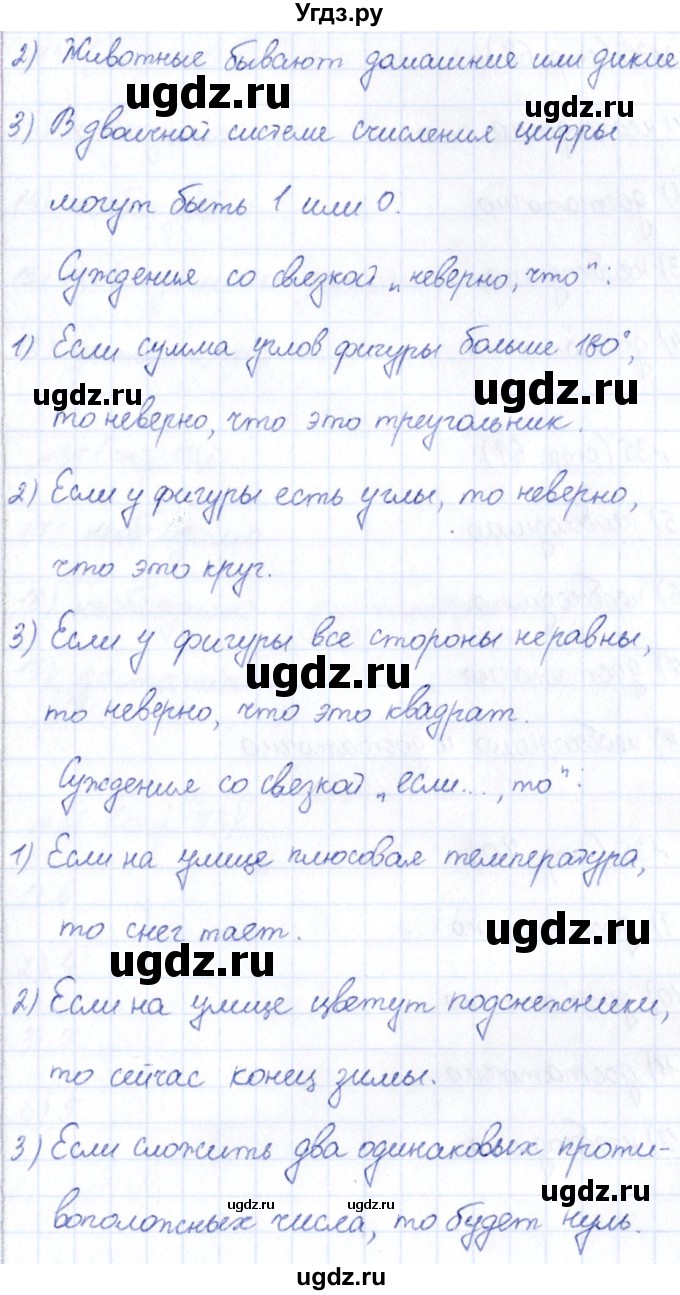 Угдз.ру
2) Животные бывают домашние или дикие
ugdz.ru ugdz.ru
3) В двоичной системе счисления цифры
могут быть 1 или 0.
Суждения со связкой „неверно, что":
1) Если сумма углов фигуры больше 180°,
ugdz.ru ugdz.ru
то неверно, что это треугольник.
2) Если у фигуры есть углы, то неверно,
что это круг.
3) Если у фигуры все стороны неравны,
ugdz.ru
то неверно, что это квадрат.
Суждения со связкой „если..., то":
1) Если на улице плюсовая температура,
то снег тает.
ugdz.ru
ugdz.ru
2) Если на улице цветут подснежники,
то сейчас конец зимы.
3) Если сложить два одинаковых проти-
ugdz.ru
ugdz.ru ugdz.ru
воположных числа, то будет нуль.
ugdz.ru